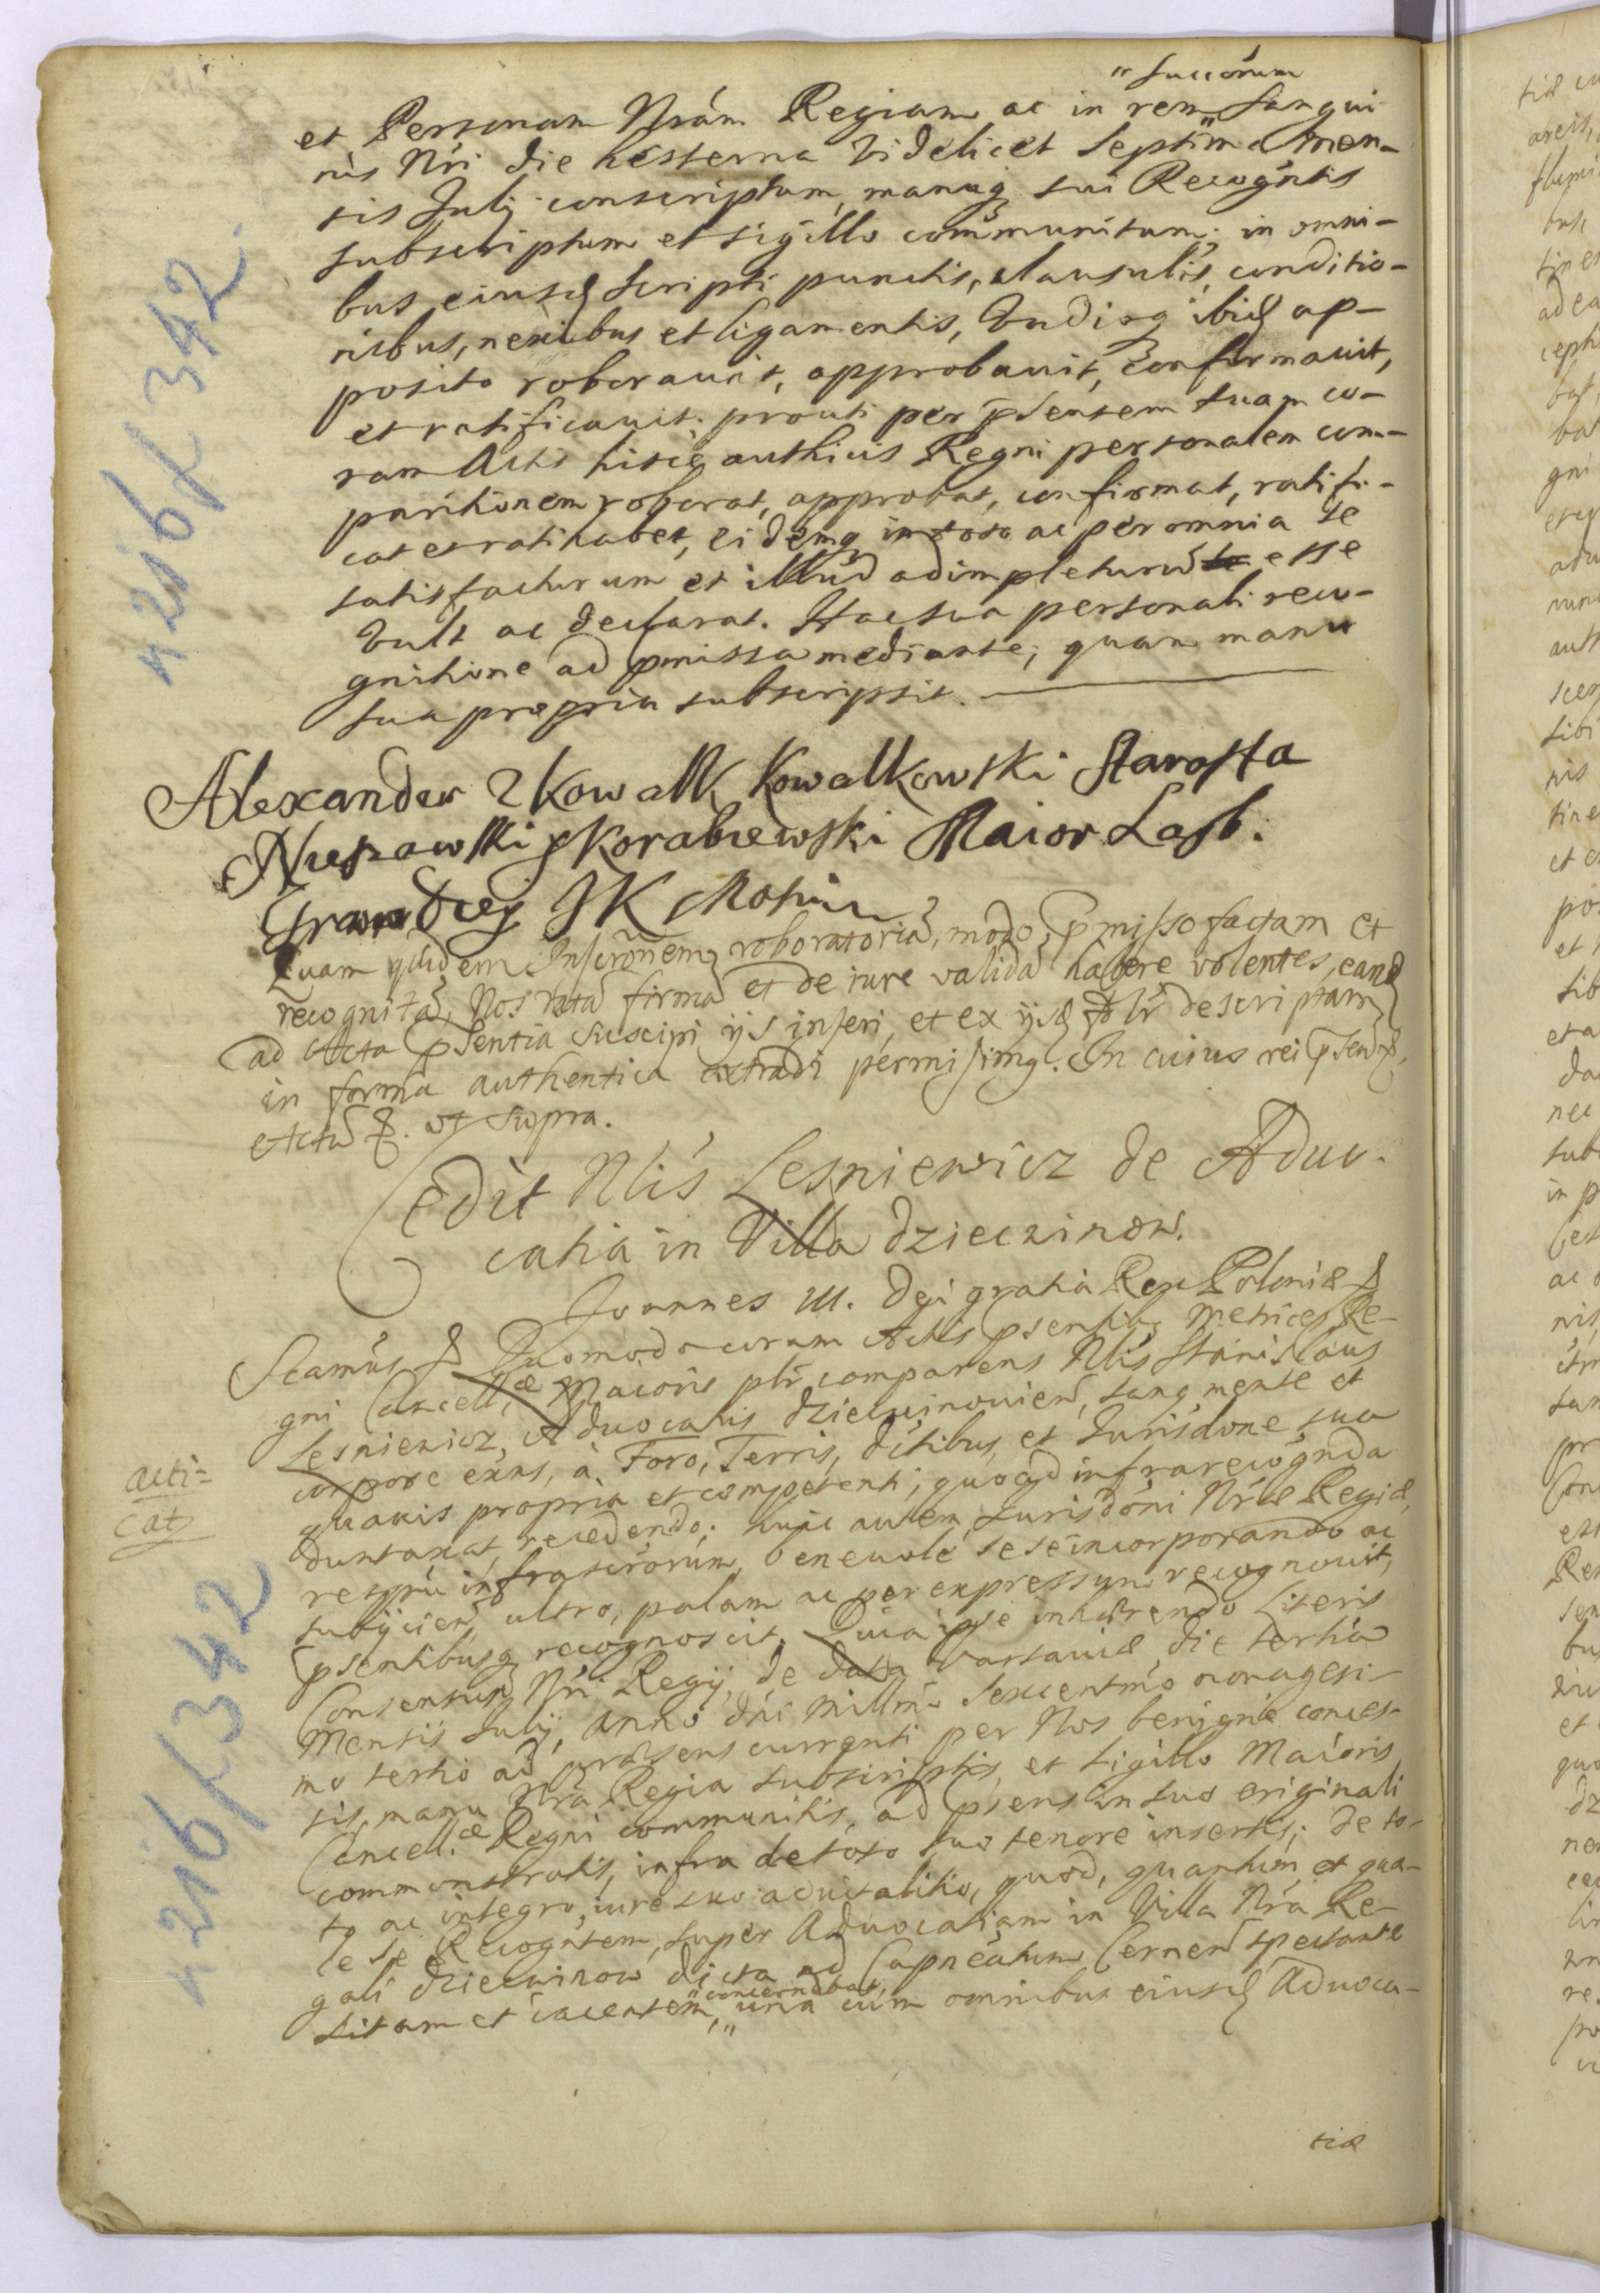 " succōrum
et Personam Nrám Regiam ac in rem " Sangui
nis Nri die hesterna videlicet Septima men-
sis Julij conscriptum, manuq sui Recogntis
subscriptum et sigillo communitum; in omni-
bus eiusd Scripti punctis, clausulis, conditio-
nibus, nexibus et ligamentis, Vadioq ibid ap-
posito roborauit, approbauit, confirmauit,
et ratificauit: prouti per pSentem suam co-
ram Actis hisce authicis Regni personalem com-
paritionem roborat, approbat, confirmat, ratifi-
cat et ratihabet, eidemq in toto ac per omnia se
satisfacturum et illud adimpleturū esse
vult ac declarat. Hac sua personali reco-
gnitione ad pmissa mediante; quam manu
sua propria subscripsit.
Alexander Kowalk Kowalkowski Starosta
Nieszawski Korabiewski Maior
JK
Quam quidem Inscrōnem roboratoriā, modo pmisso factam et
recognitā, Nos ratā firmā et de iure validā habere volentes, eand
ad Acta pSentia suscipi ijs inseri, et ex ijsd descriptam
in forma authentica extradi permisimq. In cuius rei pSend
Actū ut supra.
Cedit Nlis Lesniewicz de Aduo-
catia in Villa dziecinow.
Joannes III. Dei gratia Rex Poloniæ
Scamus Quomodo coram Actis psentibq Metrices Re-
gni Cancell. æ Maioris plr comparens Nlis Stanislaus
Lesniewicz, Aduocatus dziecinouien, sanq mente et
corpore exns, à Foro, Terris, dctibus, et Jurisdone sua
quauis propria et competenti, quoad infrarecognda
duntaxat, recedendo; huic autem Jurisdōni Nræ Regiæ,
respctu infrascrorum, beneuole sese incorporando ac
subijcien, ultro, palam ac per expressum recognouit,
psentibusq recognoscit. Quia ipse inhærendo Literis
Consensus Nri Regij, de data Varsauiæ, die tertia
Mensis Julij, Anno dni Millmo Sexcentmo nonagesi-
mo tertio ad præsens currenti per Nos benigne conces-
sis, manu Nra Regia subscriptis, et sigillo Maioris
Cancell. æ Regni communitis, ad psens in suo originali
commonstratis, infra de toto suo tenore insertis; de to-
to ac integro, iure suo aduitalitio, quod, quantum et qua-
le se Recogntem, super Aduocatiam in Villa Nra Re-
gali dziecinow dicta ad Capneatum Cernen spectante
sitam et iacentem, " concernebat, una cum omnibus eiusd Aduoca-
tiæ
acti-
catq
4216/342.
4216/342